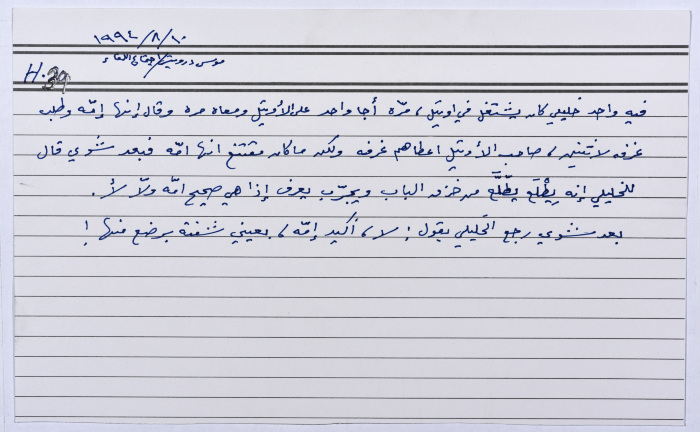 ١٩٩٤/٨/١٠
موسى درويش /
H.39
فيه واحد خليلي كان يشتغل في اوتيل، مرّه أجا واحد على الأوتيل ومعاه مره وقال إنها إمّه وطلب
غرفه لاثنين، صاحب الأوتيل اعطاهم غرفه ولكن ما كان مقتنع انها امّه فبعد شوي قال
للخليلي إنه يِطْلَع يِطَّلَّع من خزق الباب ويجرّب يعرف إذا هي صحيح امّه ولّا لأ.
بعد شوي رجع الخَليلي يقول: لا، أكيد إمّه، بعيني شفته برضع منها!